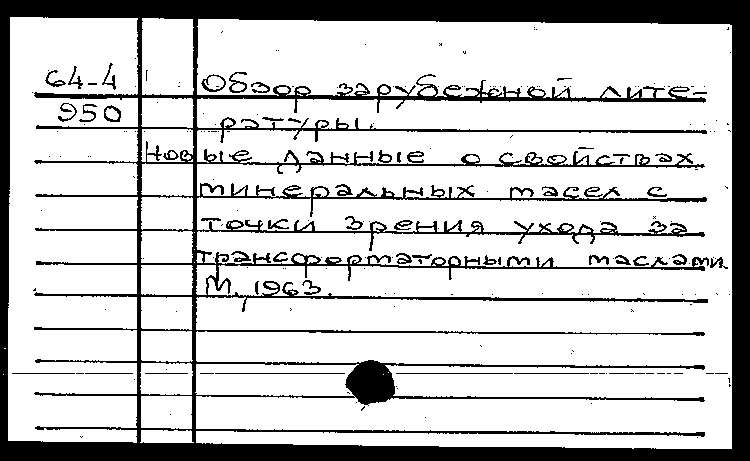 64-4 Обзор зарубежной лите-
950 ратуры.
Новые данные о свойствах
минеральных масел с
точки зрения ухода за
трансформаторными маслами.
М., 1963.